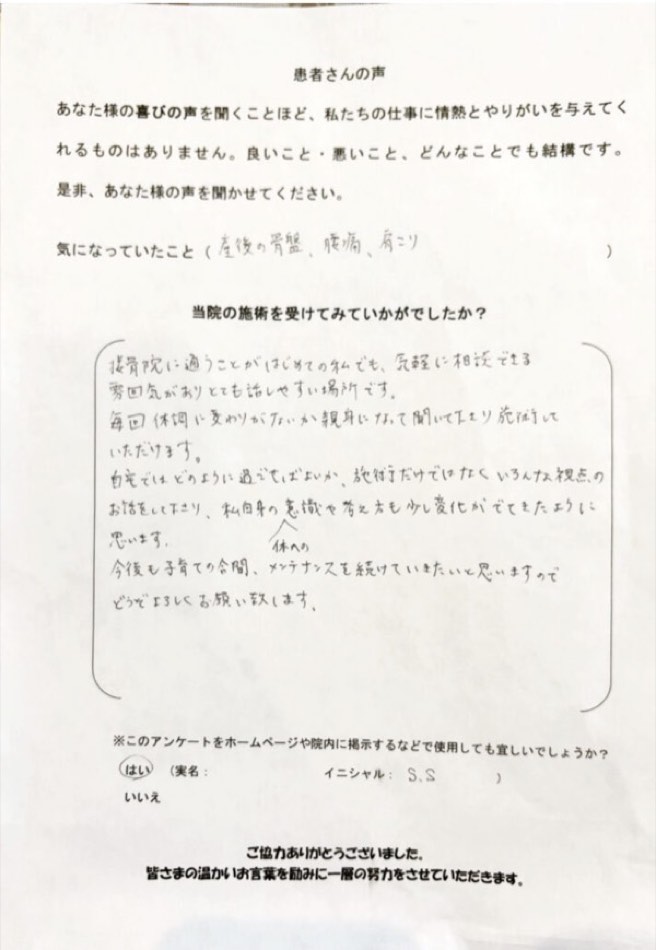 患者さんの声
あなた様の喜びの声を聞くことほど、私たちの仕事に情熱とやりがいを与えてく
れるものはありません。良いこと・悪いこと、どんなことでも結構です。
是非、あなた様の声を聞かせてください。
気になっていたこと（産後の骨盤、腰痛、肩こり）
当院の施術を受けてみていかがでしたか？
接骨院に通うことがはじめての私でも、気軽に相談できる
雰囲気がありとても話しやすい場所です。
毎回体調に変わりがないか親身になって聞いて下さり施術して
いただけます。
自宅ではどのように過ごせばよいか、施術だけではなくいろんな視点の
お話をして下さり、私自身の意識や考え方も少し変化がでてきたように
思います。
体への
今後も子育ての合間、メンテナンスを続けていきたいと思いますので
どうぞよろしくお願い致します。
※このアンケートをホームページや院内に掲示するなどで使用しても宜しいでしょうか？
はい （実名： イニシャル： S.S ）
いいえ
ご協力ありがとうございました。
皆さまの温かいお言葉を励みに一層の努力をさせていただきます。